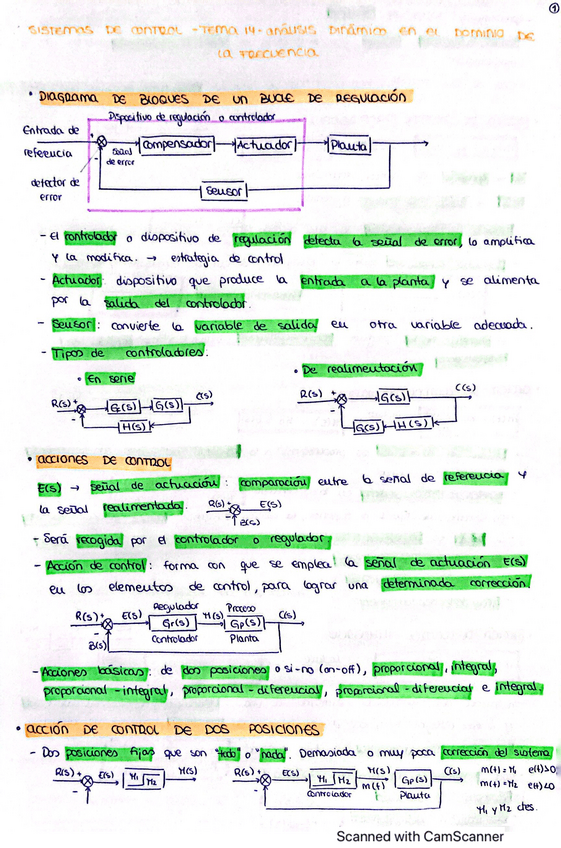 ①
SISTEMAS DE CONTROL - TEMA 14 - ANÁLISIS DINÁMICO EN EL DOMINIO DE
LA FRECUENCIA
• DIAGRAMA DE BLOQUES DE UN BUCLE DE REGULACIÓN
Dispositivo de regulación o controlador
Entrada de
referencia
+
-
señal
de error
Compensador
Actuador
Planta
detector de
error
Sensor
- El controlador o dispositivo de regulación detecta la señal de error, lo amplifica
y la modifica. → estrategia de control
- Actuador: dispositivo que produce la entrada a la planta y se alimenta
por la salida del controlador.
- Sensor: convierte la variable de salida en otra variable adecuada.
- Tipos de controladores.
• En serie
• De realimentación
R(s) + - Gc(s) G(s) C(s)
H(s)
R(s) + - G(s) C(s)
Gc(s) H(s)
• ACCIONES DE CONTROL
E(s) → señal de actuación: comparación entre la señal de referencia y
la señal realimentada. R(s) + E(s)
- B(s)
- Será recogida por el controlador o regulador.
- Acción de control: forma con que se emplea la señal de actuación E(s)
en los elementos de control, para lograr una determinada corrección.
Regulador Proceso
R(s) + E(s) Gr(s) M(s) Gp(s) C(s)
- B(s) Controlador Planta
- Acciones básicas: de dos posiciones o si-no (on-off), proporcional, integral,
proporcional-integral, proporcional-diferencial, proporcional-diferencial e integral.
• ACCIÓN DE CONTROL DE DOS POSICIONES
- Dos posiciones fijas que son "todo" o "nada". Demasiada o muy poca corrección del sistema
R(s) + - E(s) M1 M2 M(s)
R(s) + - E(s) M1 M2 M(s) m(t) Gp(s) C(s)
Controlador Planta
m(t) = M1 e(t)>0
m(t) = M2 e(t)<0
M1 y M2 ctes.
Scanned with CamScanner